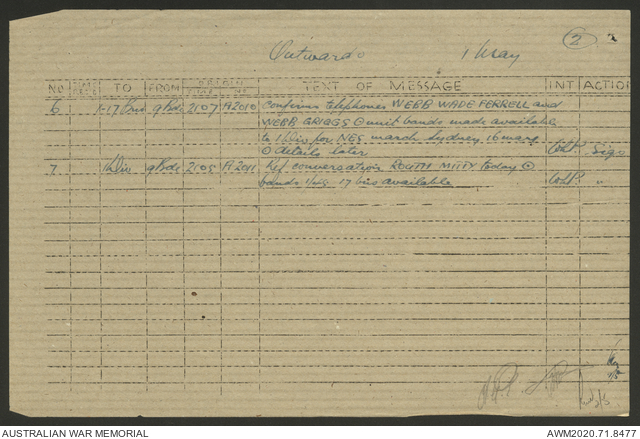 Outwards 1 May 2
NO TIME RECD TO FROM ORIGIN TIME NO TEXT OF MESSAGE INT ACTION
6 1-17 Bns 9 Bde 2107 A2010 Confirms telephones WEBB WADE FERRELL and
WEBB GRIGGS unit bands made available
to 1 Div for NES march Sydney 16 may
details later Sigs
7 1 Div 9 Bde 2105 A2011 Ref. conversation ROUTH MITTY today
bands 17 bns available "
AUSTRALIAN WAR MEMORIAL AWM2020.71.8477